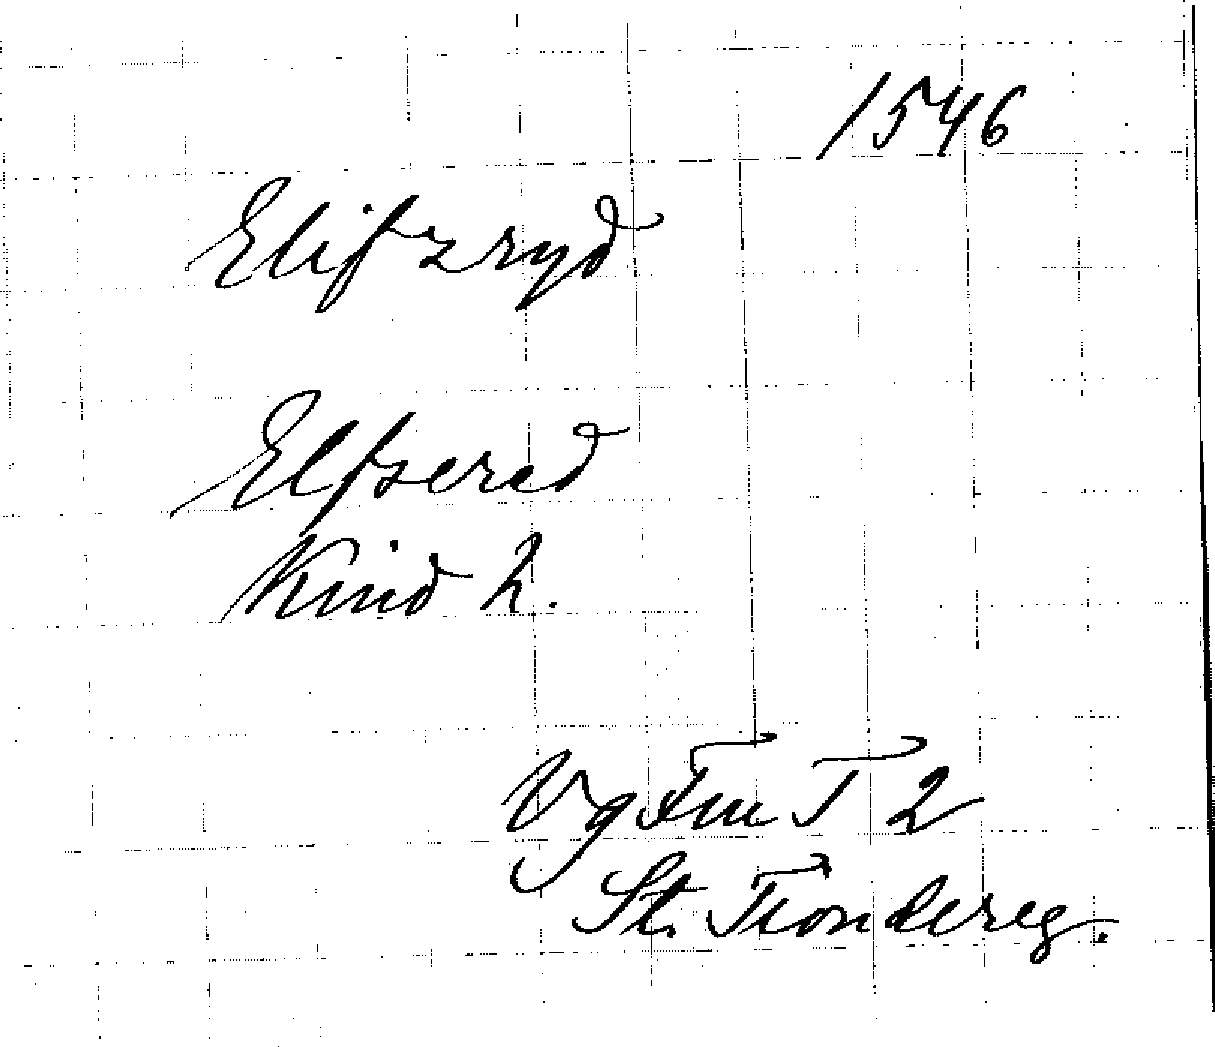 1546
Elifzryd
Elfsered
Kind h.
Vg Fm T 2
St. Tiondereg.